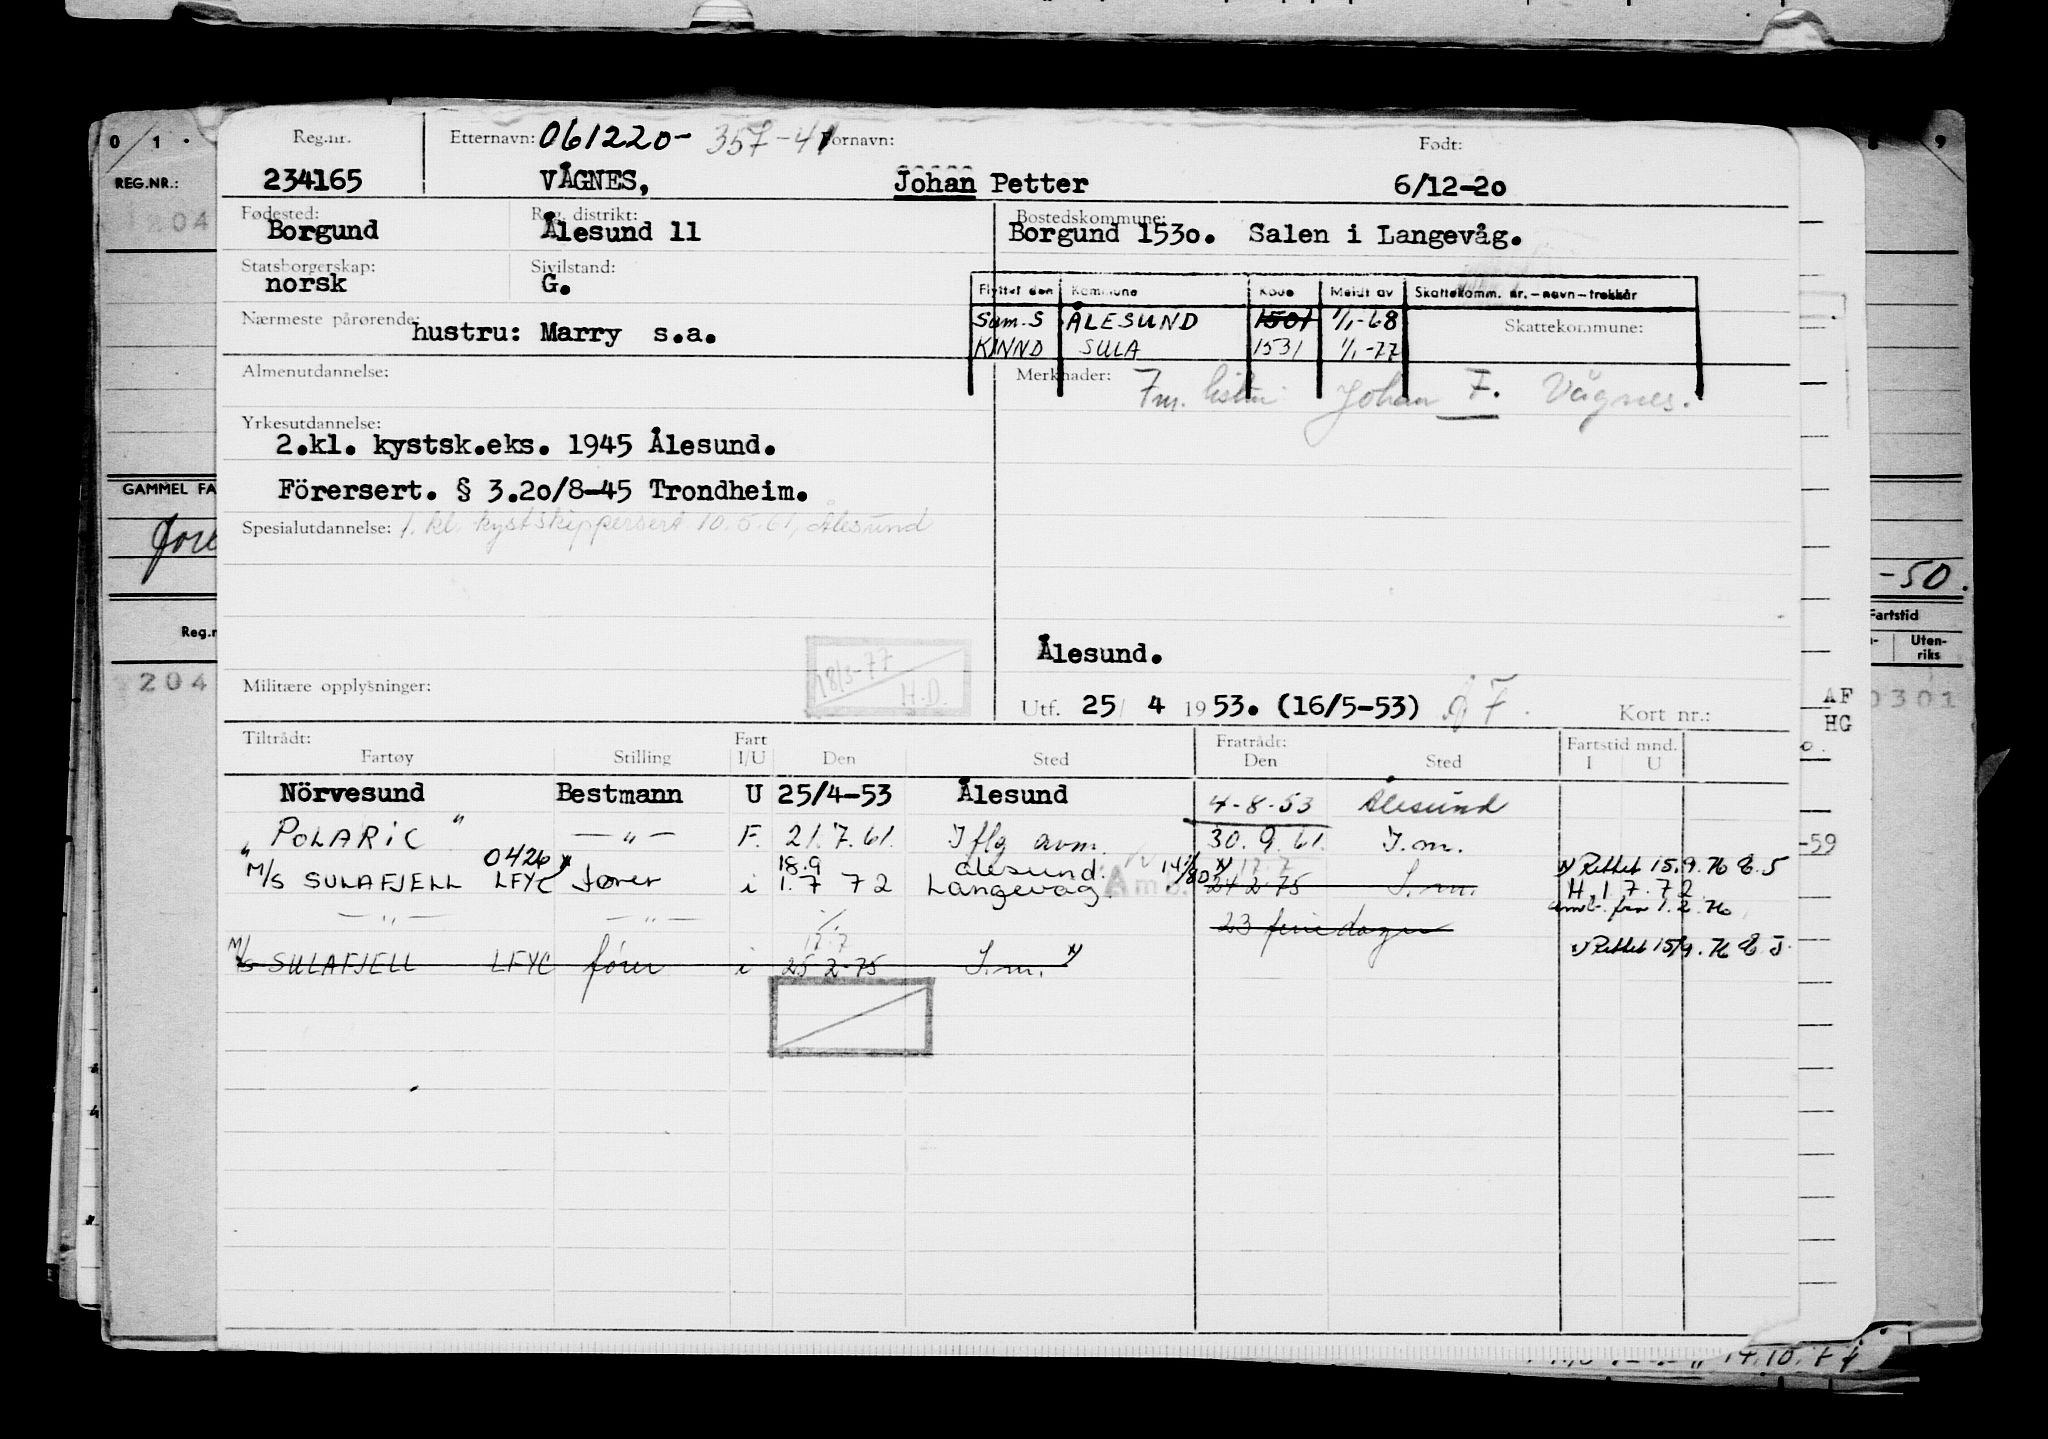 Reg.nr. Etternavn: 061220- 357-41 Fornavn: Født:
234165 VÅGNES, Johan Petter 6/12-20
Fødested: Reg. distrikt: Bostedskommune:
Borgund Ålesund 11 Borgund 1530. Salen i Langevåg.
Statsborgerskap: Sivilstand:
norsk G.
Flyttet den Kommune Kode Meldt av Skattekomm. nr.-navn-trekkår
Sam.S ÅLESUND 1501 1/1-68 Skattekommune:
KINND SULA 1531 1/1-77
Nærmeste pårørende: hustru: Marry s.a.
Almenutdannelse: Merknader: Fm. Johan F. Vågnes.
Yrkesutdannelse:
2.kl. kystsk.eks. 1945 Ålesund.
Förersert. § 3.20/8-45 Trondheim.
Spesialutdannelse: 1. kl. kystskippersert 10.5.61, Ålesund
Ålesund.
18/3-77
H.D.
Militære opplysninger: Utf. 25/ 4 1953. (16/5-53) Kort nr.:
Tiltrådt: Fart Fratrådt: Fartstid mnd.
Fartøy Stilling I/U Den Sted Den Sted I U
Nörvesund Bestmann U 25/4-53 Ålesund 4-8.53 Ålesund
"POLARIC" — " — F. 21.7.61. I flg avm. 30.9.61. I.m.
0426 18.9 Ålesund. 17.7 Rettet 15.9.76
M/S SULAFJELL LFYC fører i 1.7 72 Langevåg. Amb. 24 2-75 S.m. H. 1 7. 72
— " — — " — amb. fra 1.2.76
23 feriedager
17.7 Rettet 15/9.76
M/S SULAFJELL LFYC fører i 25-2-75 S.m.
0/1.
REG.NR.:
204
GAMMEL FA
Reg.n
204
-50.
Fartstid
Uten-
riks
0301
AF
HG
-59
14.10.